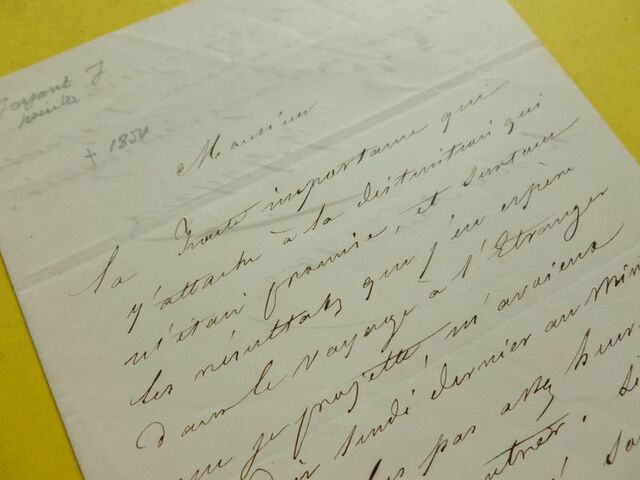 Joyant J
peintre
+ 1854
Monsieur
La haute importance que
j'attache à la distinction qui
m'était promise, et surtout
les résultats que j'en espère
dans le voyage à l'Etranger
que je projette, m'avaient
lundi dernier au Min
pas assez heur